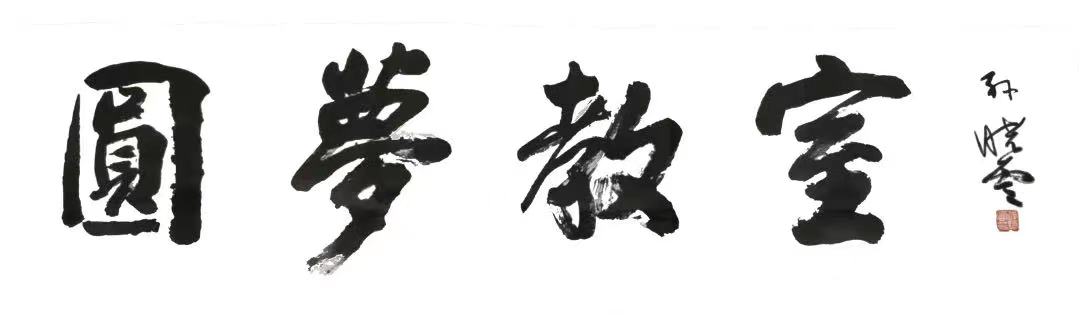 圓夢教室
孙晓雲